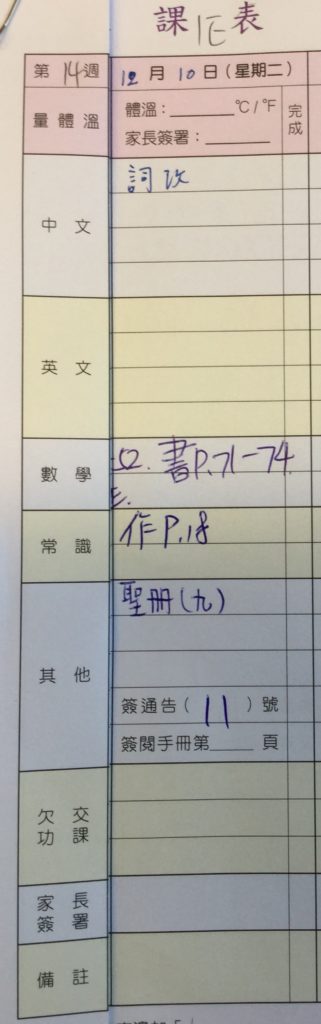 課 1E 表
第14週 12月10日(星期二)
量體溫 體溫：______℃/℉ 完成
家長簽署：______
中文 詞改
英文
數學 書P.71-74
常識 作P.18
其他 聖冊(九)
簽通告(11)號
簽閱手冊第____頁
欠交功課
家長簽署
備註